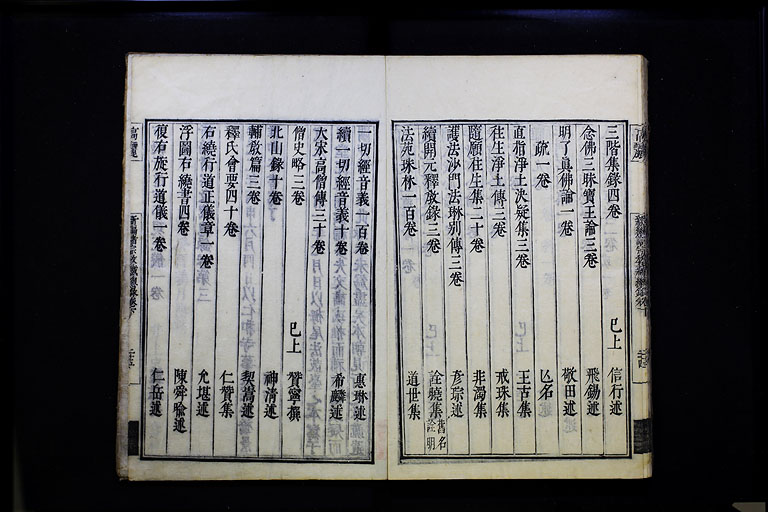 三階集錄四卷 已上 信行述
念佛三昧寶王論三卷 飛錫述
明了眞佛論一卷 敬田述
疏一卷 亾名
直指淨土決疑集三卷 王古集
往生淨土傳三卷 戒珠集
隨願往生集二十卷 非濁集
護法沙門法琳別傳三卷 彥琮述
續開元釋敎錄三卷 詮曉集舊名詮明
法苑珠林一百卷 道世集
一切經音義一百卷 惠琳述
續一切經音義十卷 希麟述
大宋高僧傳三十卷
僧史略三卷 已上 贊寧撰
北山錄十卷 神清述
輔敎篇三卷 契嵩述
釋氏會要四十卷 仁贊集
右繞行道正儀章一卷 允堪述
浮圖右繞書四卷 陳舜喩述
復右旋行道儀一卷 仁岳述